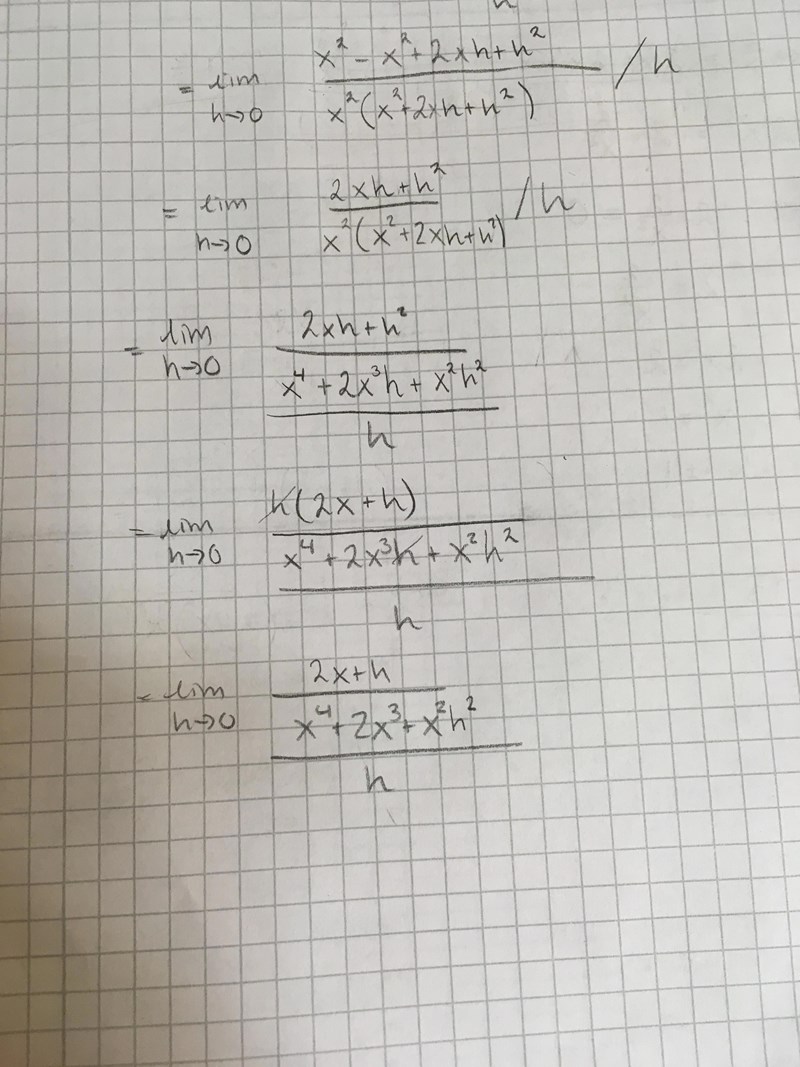 h
= lim h→0 (x² - x² + 2xh + h²) / (x²(x² + 2xh + h²)) / h
= lim h→0 (2xh + h²) / (x²(x² + 2xh + h²)) / h
= lim h→0 (2xh + h²) / (x⁴ + 2x³h + x²h²) / h
= lim h→0 h(2x + h) / (x⁴ + 2x³h + x²h²) / h
= lim h→0 (2x + h) / (x⁴ + 2x³ + x²h²) / h